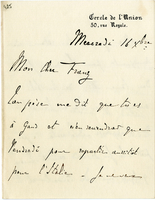 Cercle de l'Union
50, rue Royale.
Mercredi 16 Xbre
Mon cher Franz
pose me dit que tu es
à Gand et n'en reviendrait que
Vendredi pour repartir aussitôt
pour l'Italie - Je